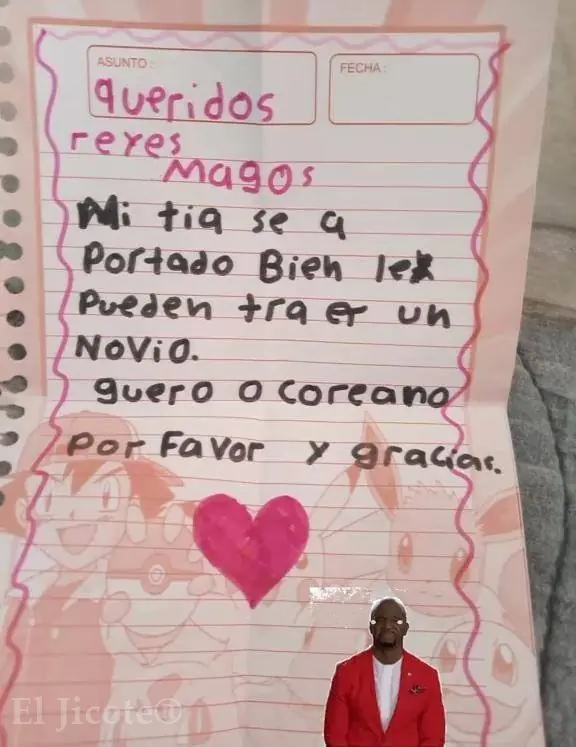 ASUNTO:
FECHA:
queridos
reyes
Magos
Mi tia se a
Portado Bien le
Pueden traer un
NoViO.
guero o coreano
por FaVor y gracias.
El Jicote®